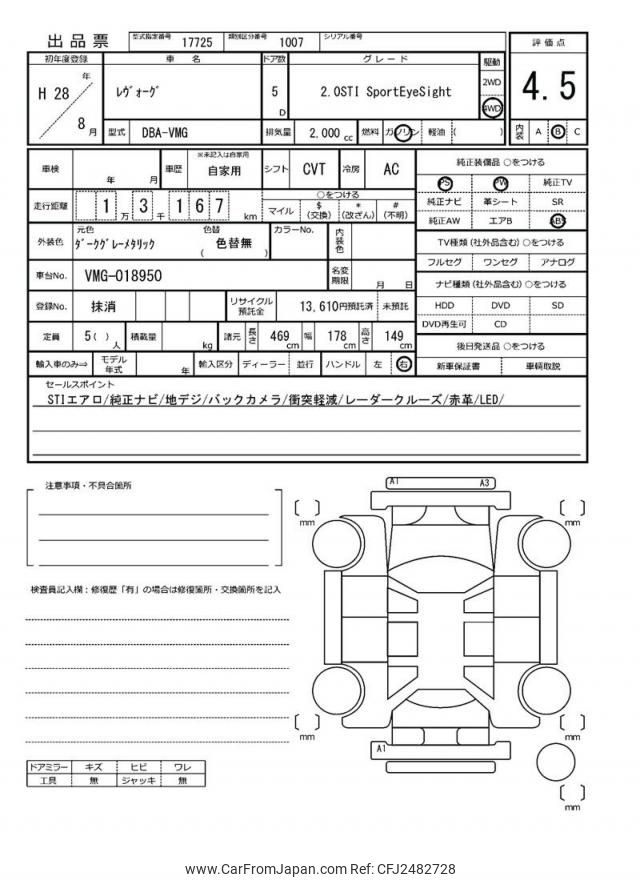 出品票 型式指定番号 17725 類別区分番号 1007 シリアル番号
初年度登録 車 名 ドア数 グレード 駆動 評価点
H 28 年 8 月 ﾚｳﾞｫｰｸﾞ 5 D 2.0STI SportEyeSight 2WD 4WD 4.5
型式 DBA-VMG 排気量 2,000 cc 燃料 ガソリン 軽油 ( ) 内装 A B C
車検 年 月 車歴 ※未記入は自家用 自家用 シフト CVT 冷房 AC 純正装備品 ○をつける
PS PW 純正TV
走行距離 1 万 3 千 1 6 7 km ○をつける
マイル $ (交換) * (改ざん) # (不明)
純正ナビ 革シート SR
純正AW エアB ABS
外装色 元色 ﾀﾞｰｸｸﾞﾚｰﾒﾀﾘｯｸ 色替 ( 色替無 ) カラーNo. 内装色
TV種類 (社外品含む) ○をつける
フルセグ ワンセグ アナログ
車台No. VMG-018950 名変期限 月 日
ナビ種類 (社外品含む) ○をつける
登録No. 抹消 リサイクル預託金 13,610円預託済 未預託
HDD DVD SD
DVD再生可 CD
定員 5( ) 人 積載量 kg 諸元 長さ 469 cm 幅 178 cm 高さ 149 cm
後日発送品 ○をつける
輸入車のみ⇒ モデル年式 年 輸入区分 ディーラー 並行 ハンドル 左 右
新車保証書 車輌取説
セールスポイント
STIエアロ/純正ナビ/地デジ/バックカメラ/衝突軽減/レーダークルーズ/赤革/LED/
注意事項・不具合箇所
A1 A3
mm mm
検査員記入欄：修復歴「有」の場合は修復箇所・交換箇所を記入
mm mm
A1
mm
ドアミラー キズ ヒビ ワレ
工具 無 ジャッキ 無
www.CarFromJapan.com Ref: CFJ2482728